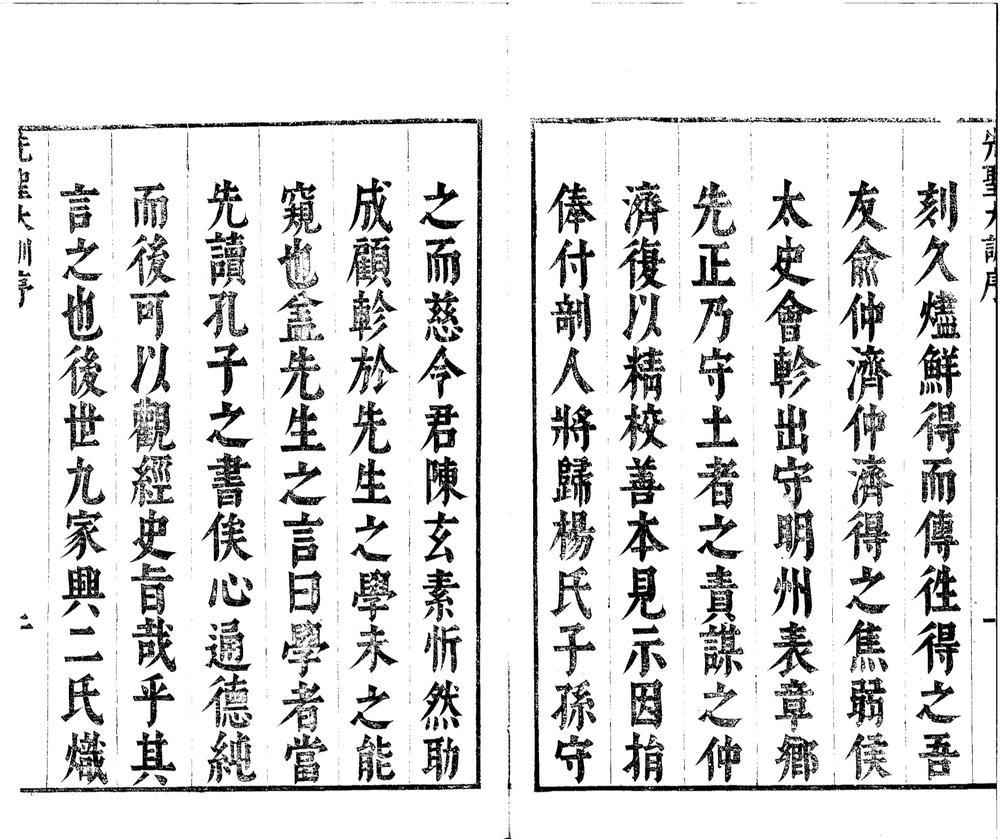 先聖大訓序
一
刻久燼鮮得而傳徃得之吾
友俞仲濟仲濟得之焦弱侯
太史會軫出守明州表章鄉
先正乃守土者之責謀之仲
濟復以精校善本見示因捐
俸付剞人將歸楊氏子孫守
之而慈今君陳玄素忻然助
成顧軫於先生之學未之能
窺也盖先生之言曰學者當
先讀孔子之書俟心通德純
而後可以觀經史旨哉乎其
言之也後世九家興二氏熾
先聖大訓序
二